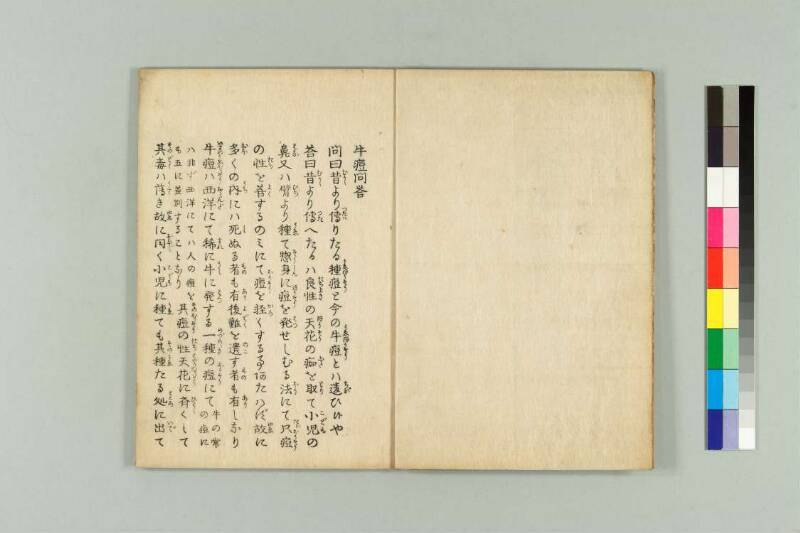 牛痘問答
問曰昔より傳りたる種痘と今の牛痘とハ違ひ候や
答曰昔より傳へたるハ良性の天花の痂を取て小児の
鼻又ハ臂より種て惣身に痘を発せしむる法にて只痘
の性を善するのミにて痘を軽くする事あたハず故に
多くの内にハ死ぬる者も有後難を遺す者も有しなり
牛痘ハ西洋にて稀に牛に発する一種の痘にて牛の常の痘に
ハ非ず西洋にてハ人の痘をも五に並別することなり其痘の性天花に斉くして
其毒ハ薄き故に因く小児に種ても其種たる処に出て